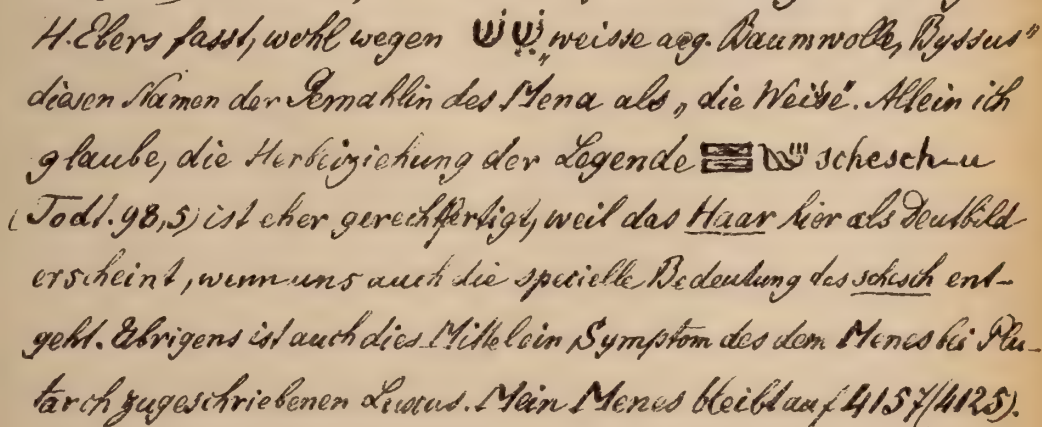 H. Ebers fasst, wohl wegen „weisse aeg. Baumwolle, Byssus"
diesen Namen der Gemahlin des Mena als „die Weisse". Allein ich
glaube, die Herbeiziehung der Legende schesch-u
(Todt. 98,5) ist eher gerechtfertigt, weil das Haar hier als Deutbild
erscheint, wenn uns auch die specielle Bedeutung des schesch ent-
geht. Übrigens ist auch dies Mittel ein Symptom des dem Menes bei Plu-
tarch zugeschriebenen Luxus. Mein Menes bleibt auf 4157(4125).